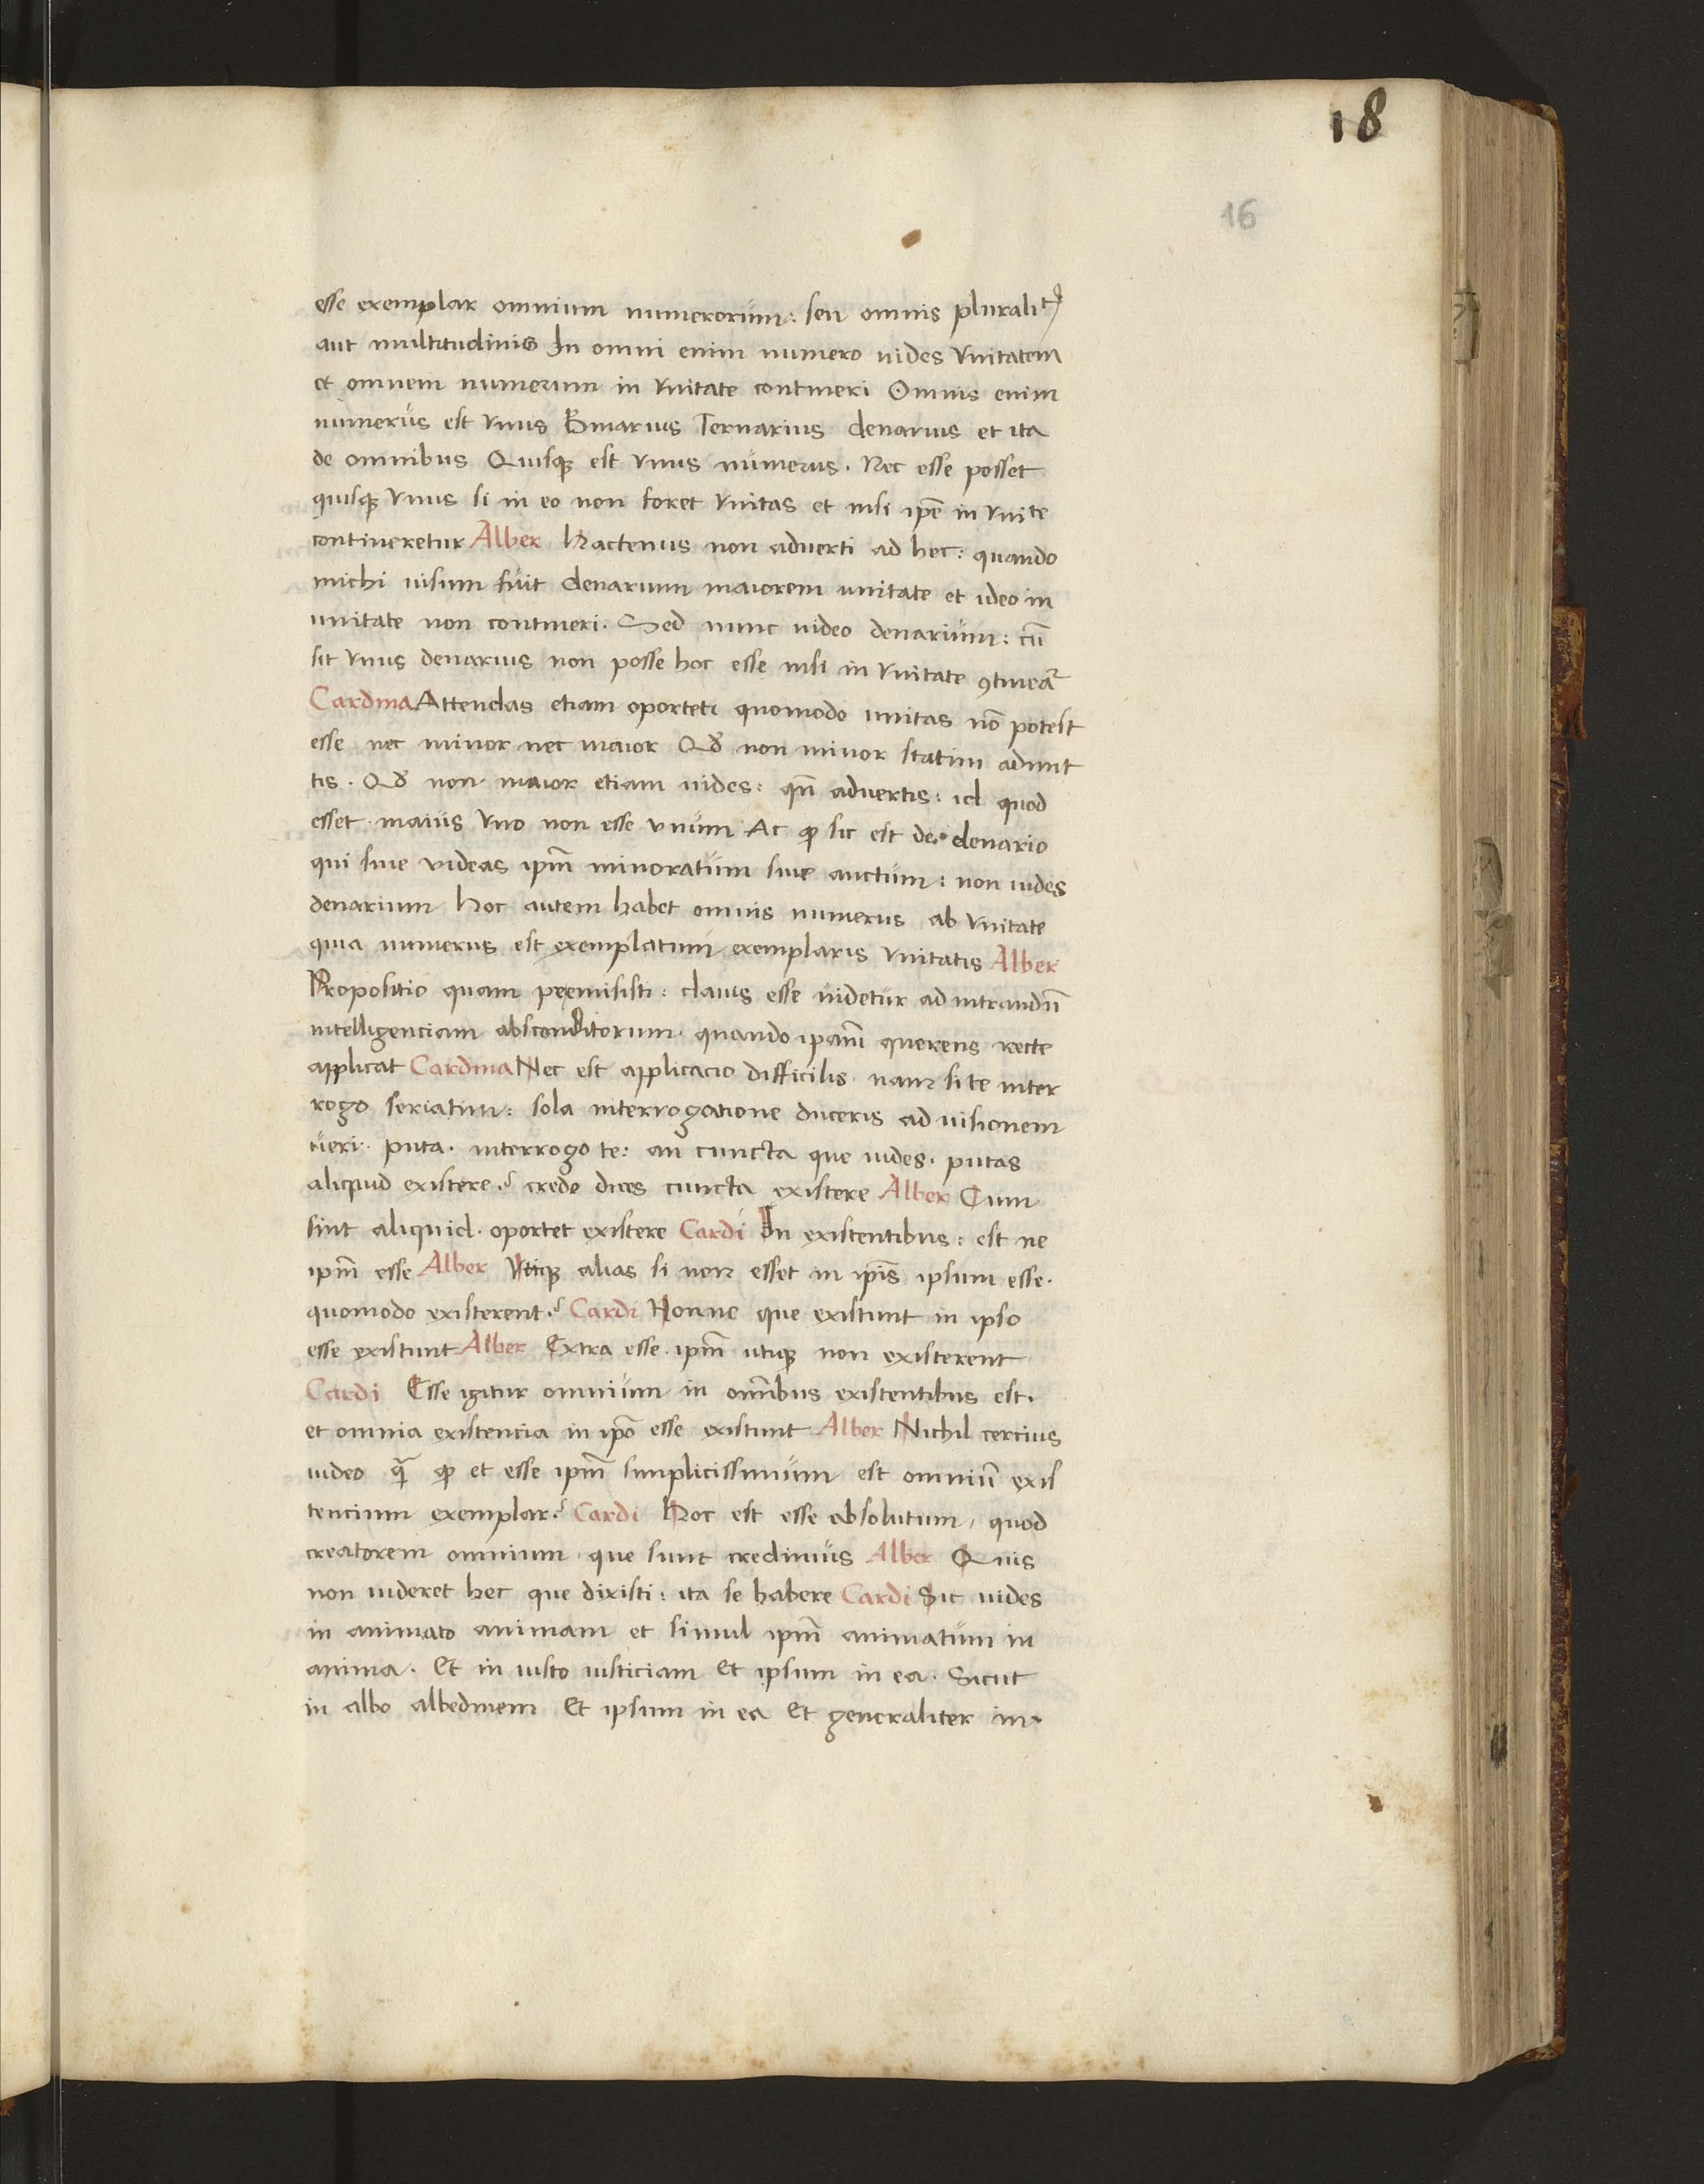 18
16
esse exemplar omnium numerorum: seu omnis pluralitꝭ
aut multitudinis In omni enim numero uides vnitatem
et omnem numerum in vnitate contineri Omnis enim
numerus est vnus Binarius Ternarius denarius et ita
de omnibus Quisqꝫ est vnus numerus. Nec esse posset
quisqꝫ vnus si in eo non foret vnitas et nisi ip̄e in vnitate
contineretur Alber Hactenus non aduerti ad hec: quando
michi uisum fuit denarium maiorem unitate et ideo in
unitate non contineri. Sed nunc uideo denarium: cū
sit vnus denarius non posse hoc esse nisi in vnitate ꝯtineat᷑
Cardina Attendas etiam oportet quomodo unitas nō potest
esse nec minor nec maior Qđ non minor statim aduert
tis. Qđ non maior etiam uides: qn̄ aduertis: id quod
esset maius vno non esse vnum Ac ꝙ sic est de denario
qui siue videas ip̄m minoratum siue auctum: non uides
denarium Hoc autem habet omnis numerus ab vnitate
quia numerus est exemplatum exemplaris vnitatis Alber
Propositio quam premisisti: clauis esse uidetur ad intrandū
intelligenciam absconditorum. quando ipam̄ querens recte
applicat Cardina Nec est applicacio difficilis. nam si te inter
rogo seriatim: sola interrogatione duceris ad uisionem
ueri. puta. interrogo te: an cuncta que uides. putas
aliquid existere? credo dices cuncta existere Alber Cum
sint aliquid. oportet existere Cardi In existentibus: est ne
ip̄m esse Alber Vtiqꝫ alias si non esset in ip̄is ipsum esse.
quomodo existerent? Cardi Nonne que existunt in ipso
esse existunt Alber Extra esse ip̄m utiqꝫ non existerent
Cardi Esse igitur omnium in om̄ibus existentibus est.
et omnia existencia in ip̄o esse existunt Alber Nichil cercius
uideo qᷓ ꝙ et esse ip̄m simplicissimum est omniū exis
tencium exemplar? Cardi Hoc est esse absolutum, quod
creatorem omnium que sunt credimus Alber Quis
non uideret hec que dixisti: ita se habere Cardi Sic uides
in animato animam et simul ip̄m animatum in
anima. Et in iusto iusticiam Et ipsum in ea. Sicut
in albo albedinem Et ipsum in ea Et generaliter in